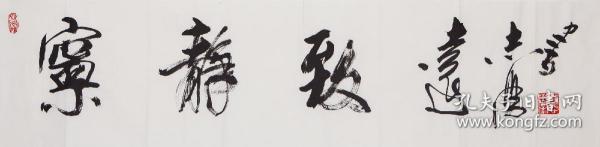 寧靜致遠
孔夫子旧书网
www.kongfz.com